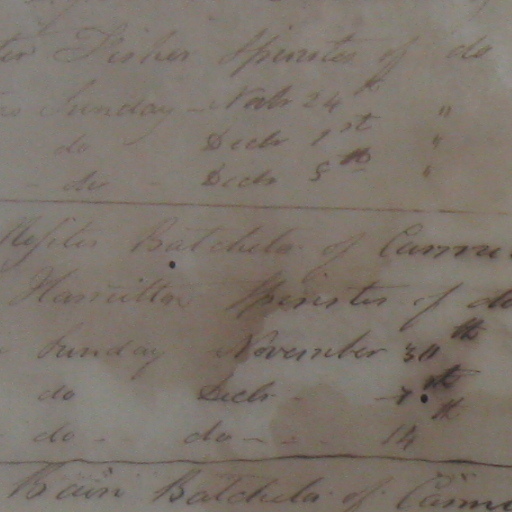 Fisher Spinster of do
Sunday Novbr 24th "
do Decbr 1st "
do Decbr 8th "
Batchelor of
Hamilton Spinster of do
Sunday November 30th
do Decbr 7th
do do 14th
Bain Batchelor of